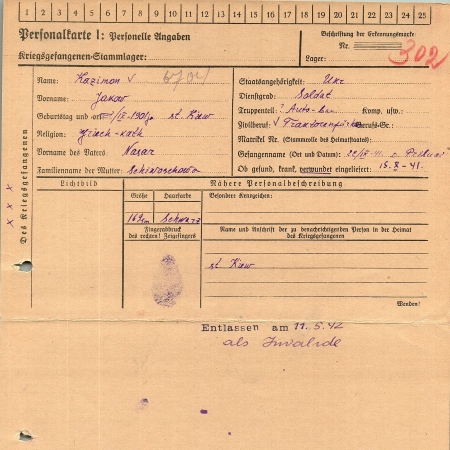 1 2 3 4 5 6 7 8 9 10 11 12 13 14 15 16 17 18 19 20 21 22 23 24 25
Personalkarte I: Personelle Angaben
Kriegsgefangenen-Stammlager:
Beschriftung der Erkennungsmarke
Nr. 302
Lager:
Des Kriegsgefangenen
x x x
Name: Kazimon V
Vorname: Jakow
Geburtstag und -ort st. Kiew
Religion: Griech-kath
Vorname des Vaters: Nasar
Familienname der Mutter:
Staatsangehörigkeit: Ukr
Dienstgrad: Soldat
Truppenteil: Auto- Komp. usw.:
Zivilberuf: Berufs-Gr.:
Matrikel Nr. (Stammrolle des Heimatstaates):
Gefangennahme (Ort und Datum):
Ob gesund, krank, verwundet eingeliefert: 15.8-41.
Lichtbild
Nähere Personalbeschreibung
Größe
Haarfarbe
Besondere Kennzeichen:
Schwarz
Fingerabdruck
des rechten! Zeigefingers
Name und Anschrift der zu benachrichtigenden Person in der Heimat
des Kriegsgefangenen
st. Kiew
Wenden!
Entlassen am 11.5.42
als Invalide